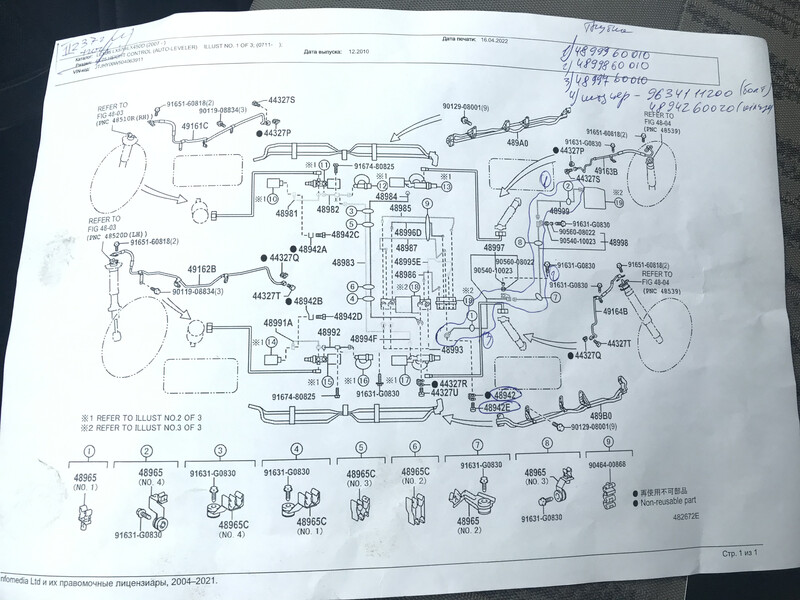 Трубки
1) 48999 60 010
2) 48998 60 010
3) 48997 60010
4) штуцер - 9634111200 (болт)
4894260020
ILLUST NO. 1 OF 3; (0711- )
Дата выпуска: 12.2010
Дата печати: 16.04.2022
REFER TO
FIG 48-03
(PNC 48510B (RH))
91651-60818(2)
90119-08834(3)
44327S
49161C
44327P
90129-08001(9)
489A0
REFER TO
FIG 48-04
(PNC 48539)
91651-60818(2)
91631-G0830
44327P
49163B
44327S
※1 11 91674-80825
※1 10
12
※1 13
48981
48982
48984
48985
3
5
9
48996D
48987
48995E
48986
48983
6
4
48942C
48942A
44327Q
※2
19
2
48999
91631-G0830
90560-08022
90540-10023
48998
8
48997
90560-08022
90540-10023
91631-G0830
91631-G0830
7
REFER TO
FIG 48-03
(PNC 48520D (LH))
91651-60818(2)
49162B
90119-08834(3)
44327T
48942B
48942D
48991A
48992
48994F
48993
※2 18
※2
18
1
91651-60818(2)
REFER TO
FIG 48-04
(PNC 48539)
49164B
44327T
44327Q
※1 14
※1
15
※1 16
※1
17
91674-80825
91631-G0830
44327R
44327U
48942
48942E
489B0
90129-08001(9)
※1 REFER TO ILLUST NO.2 OF 3
※2 REFER TO ILLUST NO.3 OF 3
1
48965
(NO. 1)
2
48965
(NO. 4)
91631-G0830
3
91631-G0830
48965C
(NO. 4)
4
91631-G0830
48965C
(NO. 1)
5
48965C
(NO. 3)
6
48965C
(NO. 2)
7
91631-G0830
48965
(NO. 2)
8
48965
(NO. 3)
91631-G0830
9
90464-00868
● 再使用不可部品
● Non-reusable part
482672E
Стр. 1 из 1
nfomedia Ltd и их правомочные лицензиары, 2004–2021.